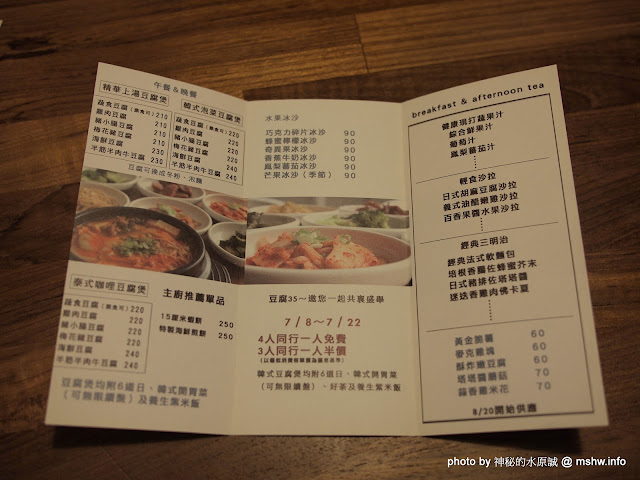 午餐&晚餐
精華上湯豆腐煲
蔬食豆腐(素食可) 210
雞肉豆腐 210
豬小腸豆腐 210
梅花豬豆腐 210
海鮮豆腐 230
半筋半肉牛豆腐 230
韓式泡菜豆腐煲
蔬食豆腐(素食可) 220
雞肉豆腐 220
豬小腸豆腐 220
梅花豬豆腐 220
海鮮豆腐 240
半筋半肉牛豆腐 240
豆腐可換成冬粉、泡麵
泰式咖哩豆腐煲
蔬食豆腐(素食可) 220
雞肉豆腐 220
豬小腸豆腐 220
梅花豬豆腐 220
海鮮豆腐 240
半筋半肉牛豆腐 240
主廚推薦單品
15厘米蝦餅 250
特製海鮮煎餅 250
豆腐煲均附6道日、韓式開胃菜
(可無限續盤)及養生紫米飯
水果冰沙
巧克力碎片冰沙 90
蜂蜜檸檬冰沙 90
奇異果冰沙 90
香蕉牛奶冰沙 90
鳳梨蕃茄冰沙 90
芒果冰沙(季節) 90
豆腐35~邀您一起共襄盛舉
7/8~7/22
4人同行一人免費
3人同行一人半價
韓式豆腐煲均附6道日、韓式開胃菜
(可無限續盤)、好茶及養生紫米飯
breakfast & afternoon tea
健康現打蔬果汁
綜合鮮果汁
葡萄汁
鳳梨蕃茄汁
輕食沙拉
日式胡麻豆腐沙拉
義式油醋嫩雞沙拉
百香果醬水果沙拉
經典三明治
經典法式軟麵包
培根香腸佐蜂蜜芥末
日式豬排佐塔塔醬
迷迭香雞肉佛卡夏
黃金脆薯 60
麥克雞塊 60
酥炸嫩豆腐 60
塔塔醬蘑菇 70
蒜香雞米花 70
8/20開始供應
photo by 神秘的水原誠 @ mshw.info